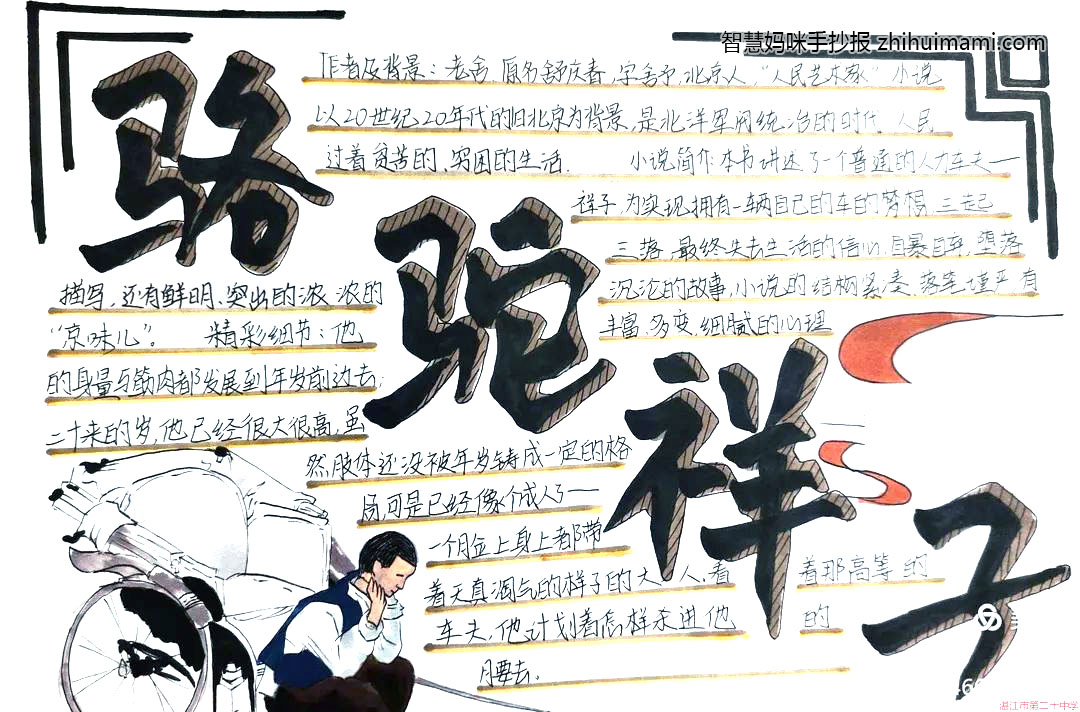 智慧妈咪手抄报 zhihuimami.com
骆驼祥子
作者及背景：老舍，原名舒庆春，字舍予，北京人，“人民艺术家”小说
以20世纪20年代的旧北京为背景，是北洋军阀统治的时代 人民
过着贫苦的、穷困的生活。 小说简介 本书讲述了一个普通的人力车夫—
祥子，为实现拥有一辆自己的车的梦想，三起
三落，最终失去生活的信心，自暴自弃，堕落
沉沦的故事，小说的结构紧凑，落笔谨严，有
丰富，多变，细腻的心理
描写，还有鲜明、突出的浓浓的
“京味儿”。 精彩细节：他
的身量与筋肉都发展到年岁前边去；
二十来的岁，他已经很大很高，虽
然肢体还没被年岁铸成一定的格
局可是已经像个成人了——
一个脸上身上都带
着天真淘气的样子的大人，看着那高等的
车夫，他计划着怎样杀进他的
腰去。
湛江市第二十中学